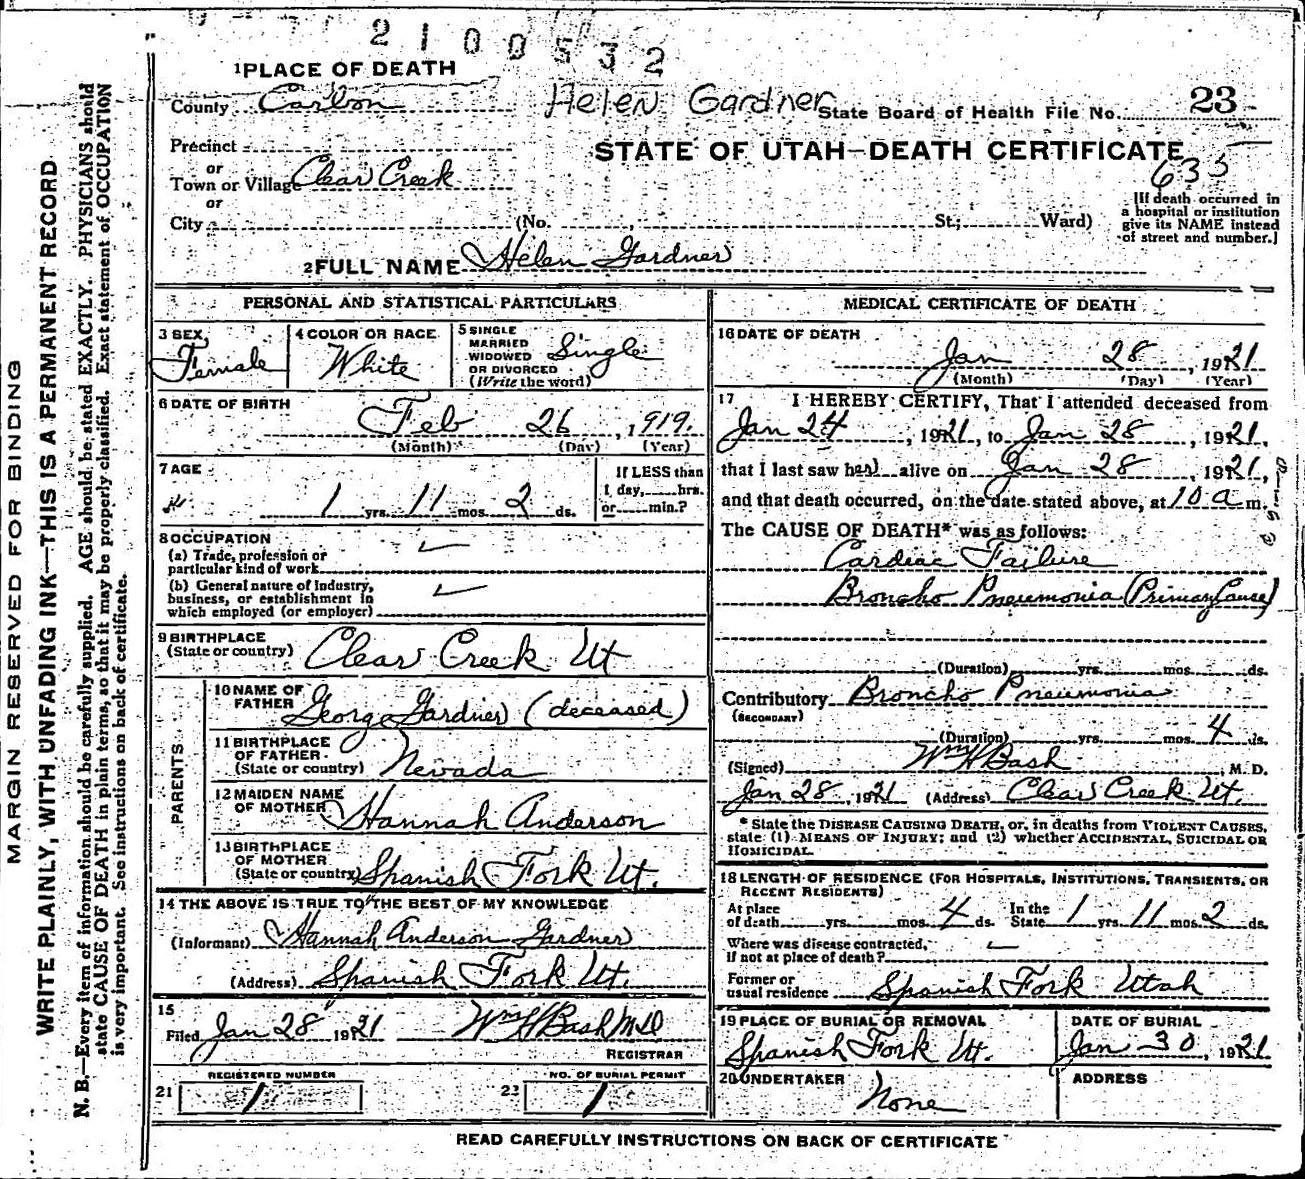 2100532
1 PLACE OF DEATH
County Carbon Helen Gardner State Board of Health File No. 23
Precinct
STATE OF UTAH—DEATH CERTIFICATE
or
635
Town or Village Clear Creek
or
[If death occurred in
a hospital or institution
give its NAME instead
of street and number.]
City (No. , St; Ward)
2 FULL NAME Helen Gardner
PERSONAL AND STATISTICAL PARTICULARS
3 SEX Female
4 COLOR OR RACE White
5 SINGLE
MARRIED
WIDOWED
OR DIVORCED
(Write the word) Single
6 DATE OF BIRTH
Feb 26, 1919.
(Month) (Day) (Year)
7 AGE
1 yrs. 11 mos. 2 ds.
If LESS than
1 day, hrs.
or min.?
8 OCCUPATION
(a) Trade, profession or
particular kind of work
(b) General nature of Industry,
business, or establishment in
which employed (or employer)
9 BIRTHPLACE
(State or country) Clear Creek Ut
PARENTS
10 NAME OF
FATHER George Gardner (deceased)
11 BIRTHPLACE
OF FATHER
(State or country) Nevada
12 MAIDEN NAME
OF MOTHER Hannah Anderson
13 BIRTHPLACE
OF MOTHER
(State or country) Spanish Fork Ut.
14 THE ABOVE IS TRUE TO THE BEST OF MY KNOWLEDGE
(Informant) Hannah Anderson Gardner
(Address) Spanish Fork Ut.
15
Filed Jan 28 1921 Wm H Bash M D
REGISTRAR
REGISTERED NUMBER
21 1
NO. OF BURIAL PERMIT
22 1
MEDICAL CERTIFICATE OF DEATH
16 DATE OF DEATH
Jan 28, 1921
(Month) (Day) (Year)
17 I HEREBY CERTIFY, That I attended deceased from
Jan 24, 1921, to Jan 28, 1921,
that I last saw her alive on Jan 28, 1921,
and that death occurred, on the date stated above, at 10 a m.
The CAUSE OF DEATH* was as follows:
Cardiac Failure
Broncho Pneumonia (Primary Cause)
(Duration) yrs. mos. ds.
Contributory Broncho Pneumonia
(SECONDARY)
(Duration) yrs. mos. 4 ds.
(Signed) Wm H Bash, M. D.
Jan 28, 1921 (Address) Clear Creek Ut.
* State the DISEASE CAUSING DEATH, or, in deaths from VIOLENT CAUSES,
state (1) MEANS OF INJURY; and (2) whether ACCIDENTAL, SUICIDAL OR
HOMICIDAL.
18 LENGTH OF RESIDENCE (FOR HOSPITALS, INSTITUTIONS, TRANSIENTS, OR
RECENT RESIDENTS)
At place
of death yrs. mos. 4 ds. In the
State 1 yrs. 11 mos. 2 ds.
Where was disease contracted,
if not at place of death?
Former or
usual residence Spanish Fork Utah
19 PLACE OF BURIAL OR REMOVAL
Spanish Fork Ut.
DATE OF BURIAL
Jan 30, 1921
20 UNDERTAKER
None
ADDRESS
READ CAREFULLY INSTRUCTIONS ON BACK OF CERTIFICATE
MARGIN RESERVED FOR BINDING
WRITE PLAINLY, WITH UNFADING INK—THIS IS A PERMANENT RECORD
N. B.—Every item of information should be carefully supplied. AGE should be stated EXACTLY. PHYSICIANS should
state CAUSE OF DEATH in plain terms, so that it may be properly classified. Exact statement of OCCUPATION
is very important. See instructions on back of certificate.